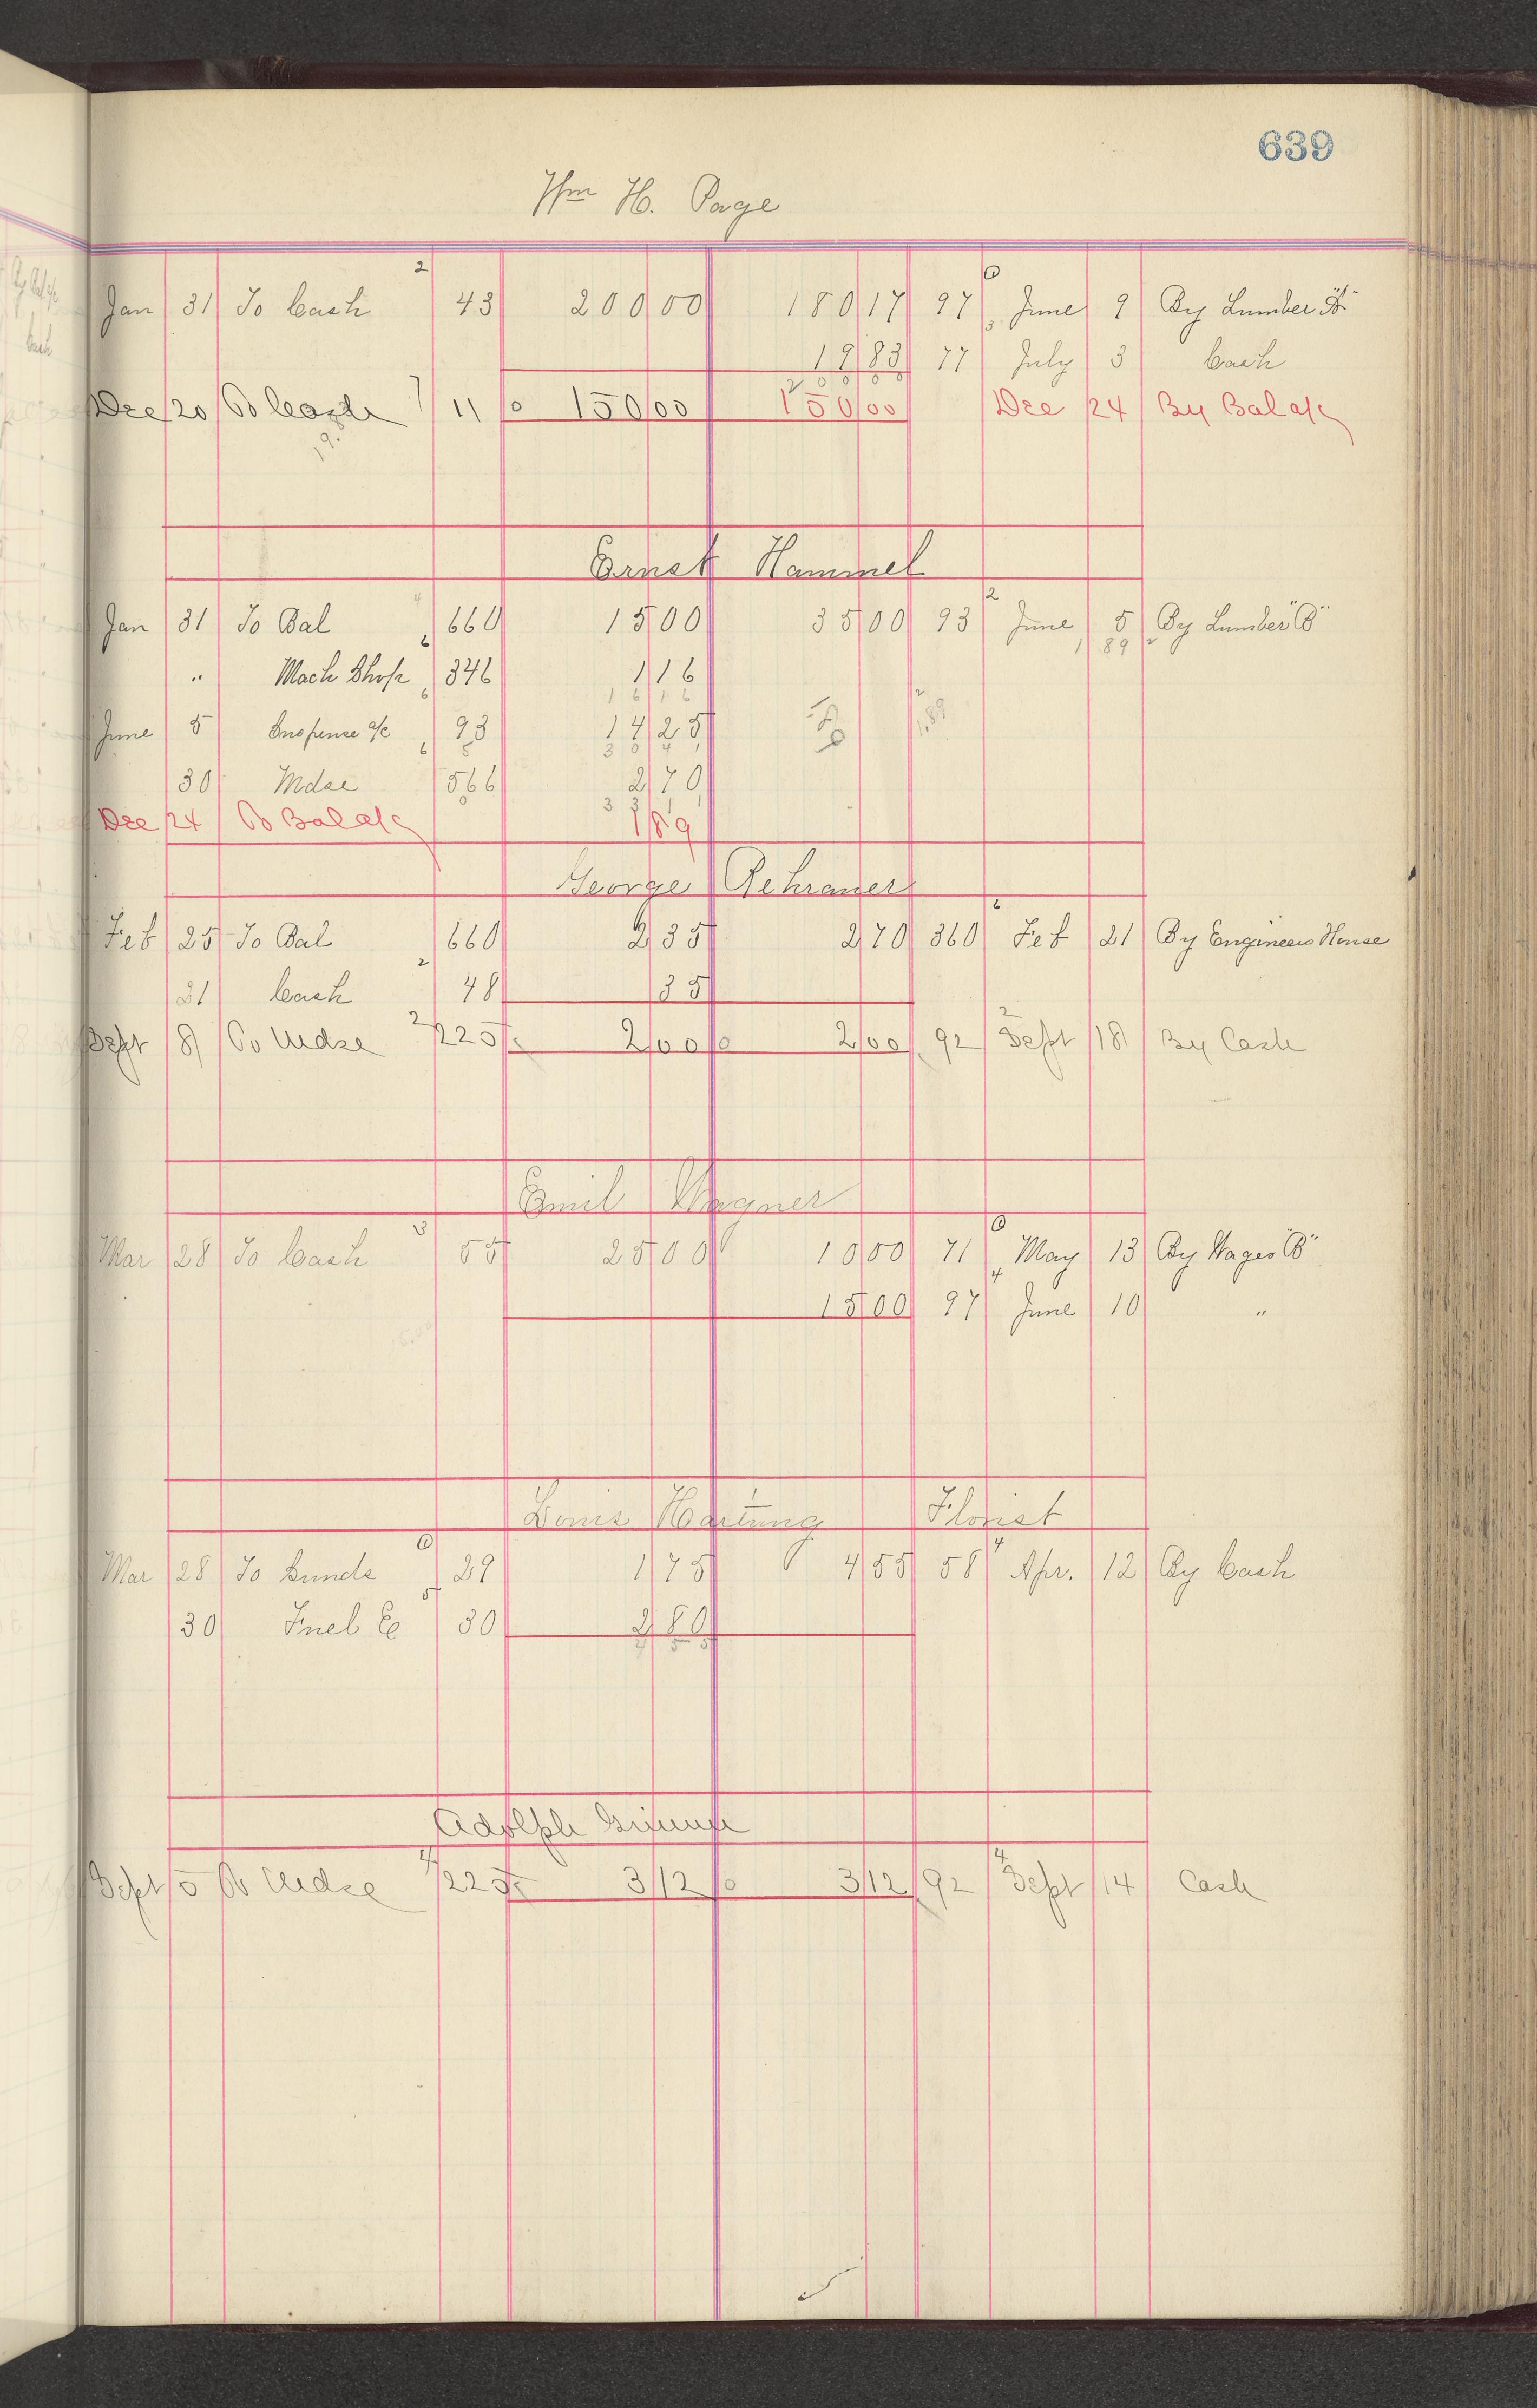 639
Wm H. Page
Jan 31 To Cash 2 43 200 00 180 17 97 6 June 9 By Lumber "A"
19 83 77 3 July 3 Cash
200 00
Dec 20 To Cash 7 11 150 00 150 00 Dec 24 By Bal a/c
Ernst Hammel
Jan 31 To Bal 660 15 00 35 00 93 2 June 5 By Lumber "B"
1 89
" Mach Shop 6 346 1 16
16 16
June 5 Suspense a/c 6 93 14 25
30 41
30 Mdse 6 566 2 70
33 11
Dec 24 To Bal a/c 1 89
George Rehraner
Feb 25 To Bal 660 2 35 2 70 360 Feb 21 By Engineers House
21 Cash 2 48 35
Sept 8 To Mdse 2 225 2 00 2 00 92 2 Sept 18 By Cash
Emil Wagner
Mar 28 To Cash 3 55 25 00 10 00 71 6 May 13 By Wages "B"
15 00 97 4 June 10 "
Louis Hartung Florist
Mar 28 To Sunds 6 29 1 75 4 55 58 4 Apr. 12 By Cash
30 Fuel Co 5 30 2 80
4 55
Adolph Grimm
Sept 5 To Mdse 4 225 3 12 3 12 92 4 Sept 14 Cash